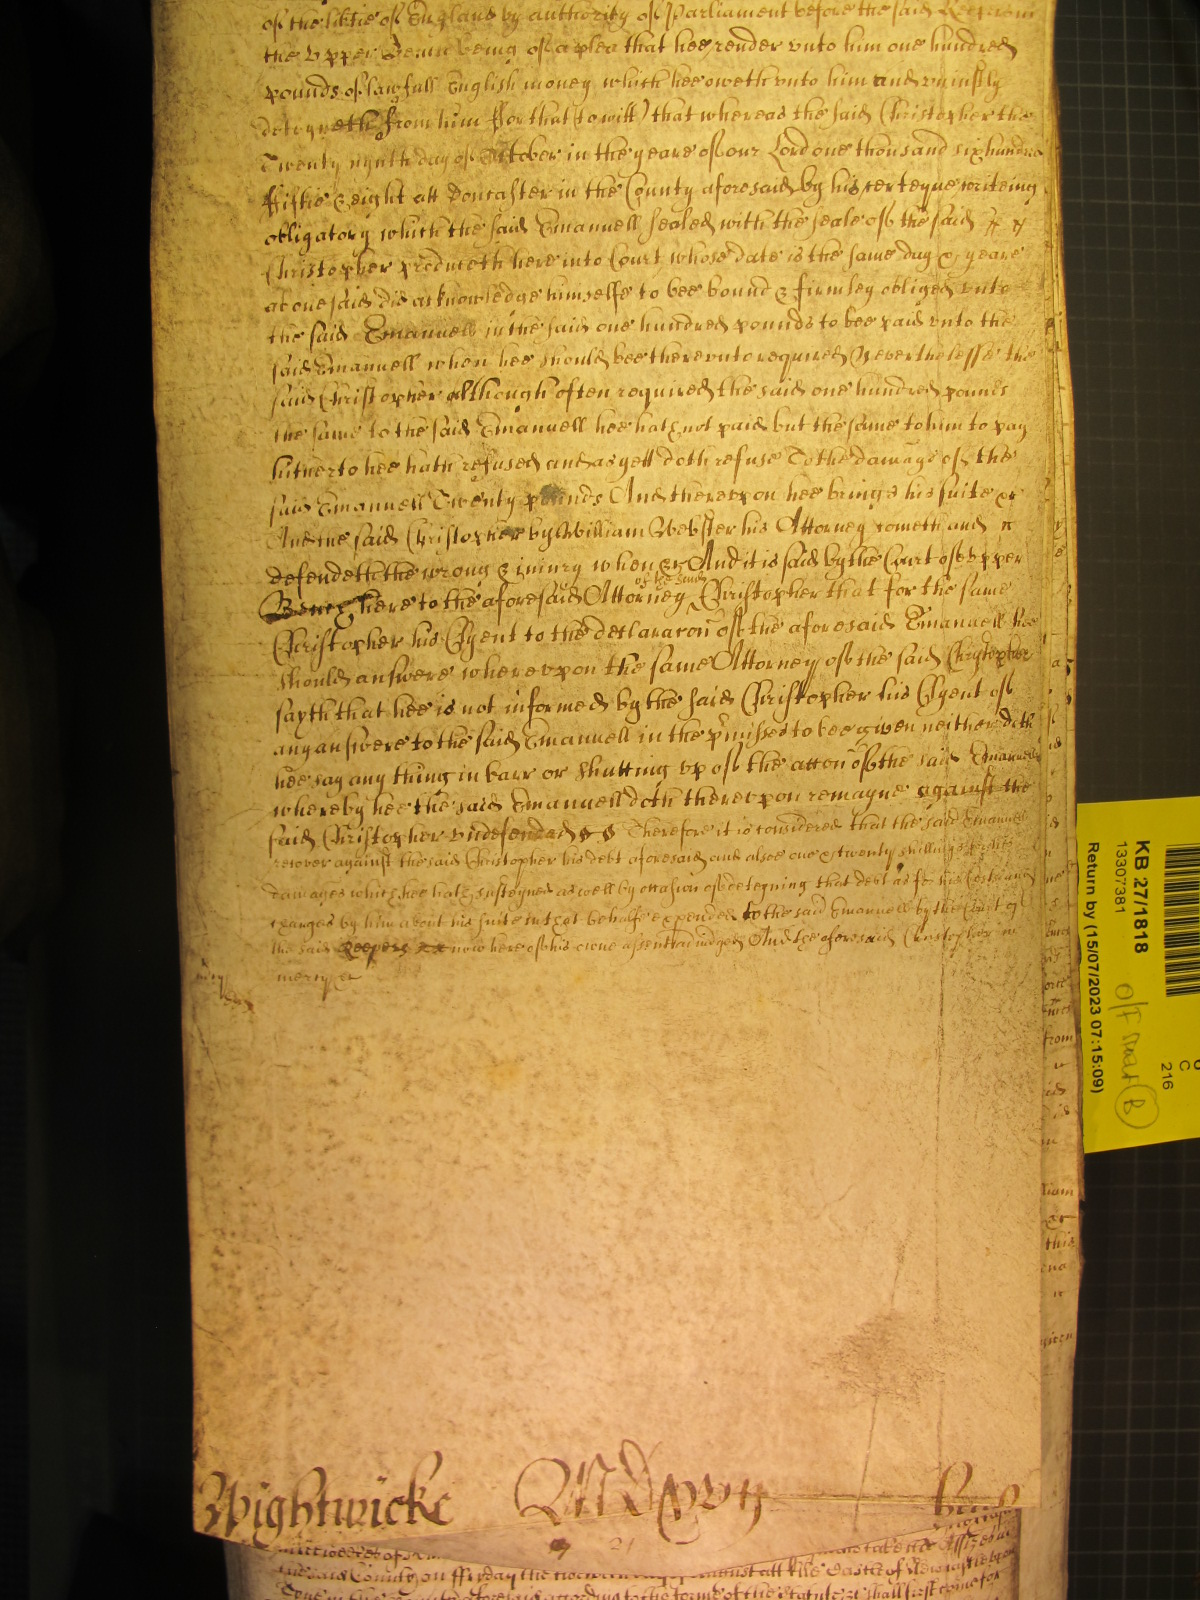 of the libtie of England by authority of Parliament before the said Keepers in
the upper Bench being of a plea that hee render unto him one hundred
pounds of lawfull English money which hee oweth unto him and uniustly
deteyneth from him ffor that (to witt) that whereas the said Christopher the
Twenty nynth day of October in the yeare of our Lord one thousand six hundred
fiftie & eight att Doncaster in the County aforesaid by his certeyne writeing
obligatory which the said Emanuell sealed with the seale of the said
Christopher produceth here into Court whose date is the same day & yeare
aforesaid did acknowledge himselfe to bee bound & firmley obliged unto
the said Emanuell in the said one hundred pounds to bee paid unto the
said Emanuell when hee should bee thereunto required Neverthelesse the
said Christopher although often required the said one hundred pounds
the same to the said Emanuell hee hath not paid but the same to him to pay
hitherto hee hath refused and as yett doth refuse To the damage of the
said Emanuell Twenty pounds And thereupon hee brings his suite &c
And the said Christopher by William Webster his Attorney cometh and
defendeth the wrong & iniury when &c And it is said by the Court of upper
Bench here to the aforesaid Attorney of the said Christopher that for the same
Christopher his Clyent to the declaracon of the aforesaid Emanuell hee
should answere whereupon the same Attorney of the said Christopher
sayth that hee is not informed by the said Christopher his Clyent of
any answere to the said Emanuell in the p'misses to bee given neither doth
hee say any thing in barr or shutting up of the accon of the said Emanuell
whereby hee the said Emanuell doth thereupon remayne against the
said Christopher undefended &c Therefore it is considered that the said Emanuel
recover against the said Christopher his debt aforesaid and alsoe one & twenty shillings for his
damages which hee hath susteyned as well by occasion of deteyning that debt as for his Costs and
charges by him about his suite in that behalfe expended to the said Emanuell by the Court of
the said Keepers &c now here of his owne assent adiudged And the aforesaid Christopher in
mercy &c
mercy
Wightwicke MDxvij
KB 27/1818
13307381
Return by (15/07/2023 07:15:09)
C
216